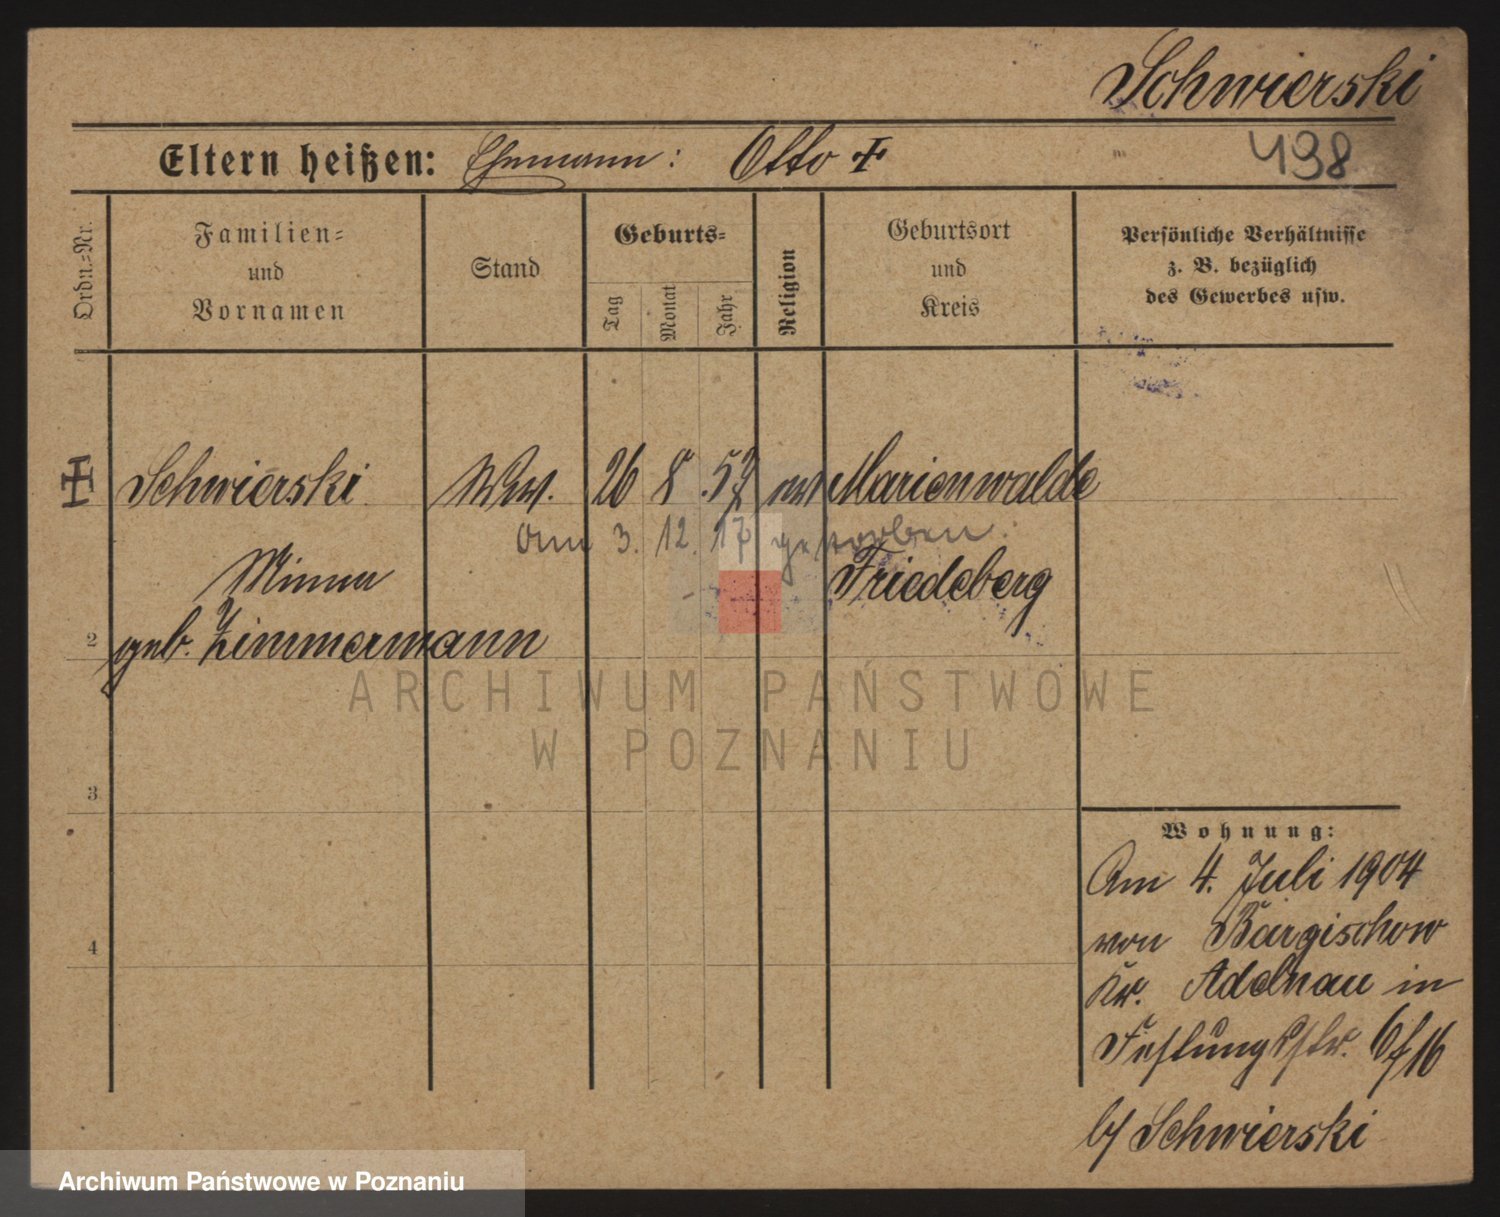 Schwierski
498
Eltern heißen: Ehemann: Otto †
Ordn.-Nr.
Familien-
und
Vornamen
Stand
Geburts-
Tag
Monat
Jahr
Religion
Geburtsort
und
Kreis
Persönliche Verhältnisse
z. B. bezüglich
des Gewerbes usw.
† Schwierski Ww. 26 8 .52 ev Marienwalde
Am 3. 12. 17 gestorben.
Minna Friedeberg
2 geb. Zimmermann
ARCHIWUM PAŃSTWOWE
W POZNANIU
3
4
Wohnung:
Am 4. Juli 1904
von Bargischow
Kr. Adelnau in
Festung Str. 6/16
b/ Schwierski
Archiwum Państwowe w Poznaniu